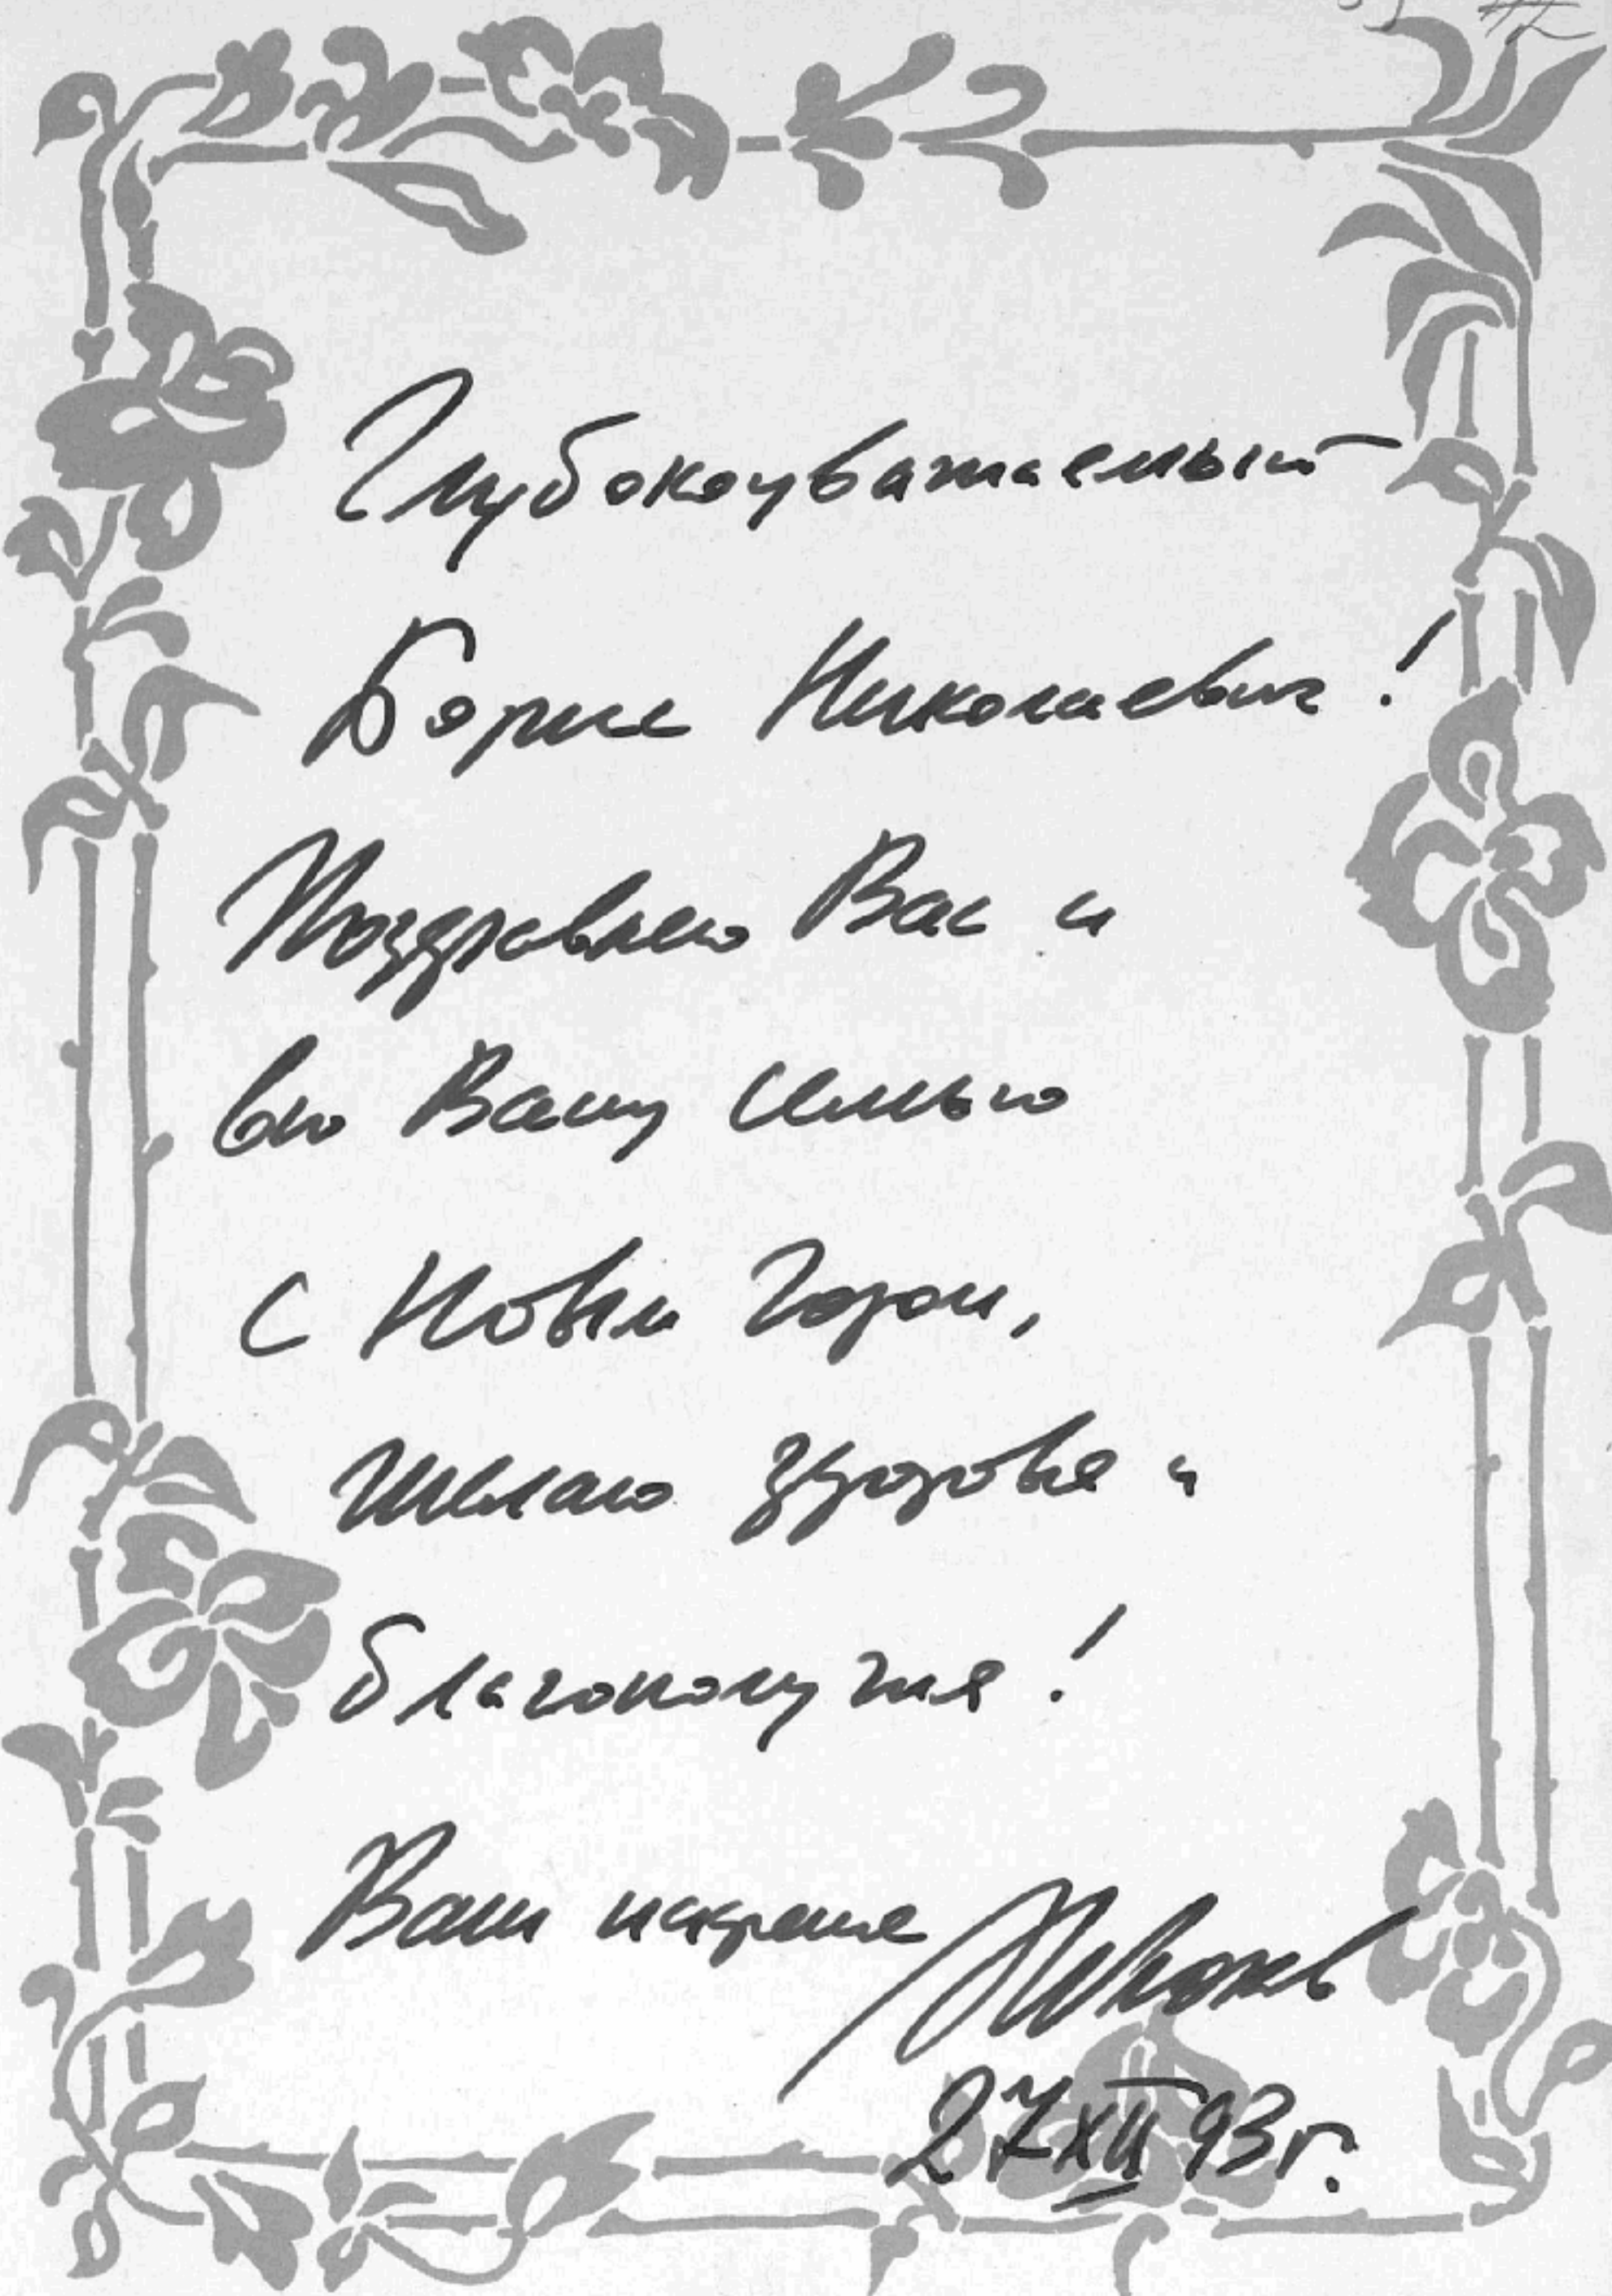 Глубокоуважаемый
Борис Николаевич!
Поздравляю Вас и
всю Вашу семью
с Новым Годом,
желаю здоровья и
благополучия!
Ваш искренне
27 XII 93 г.